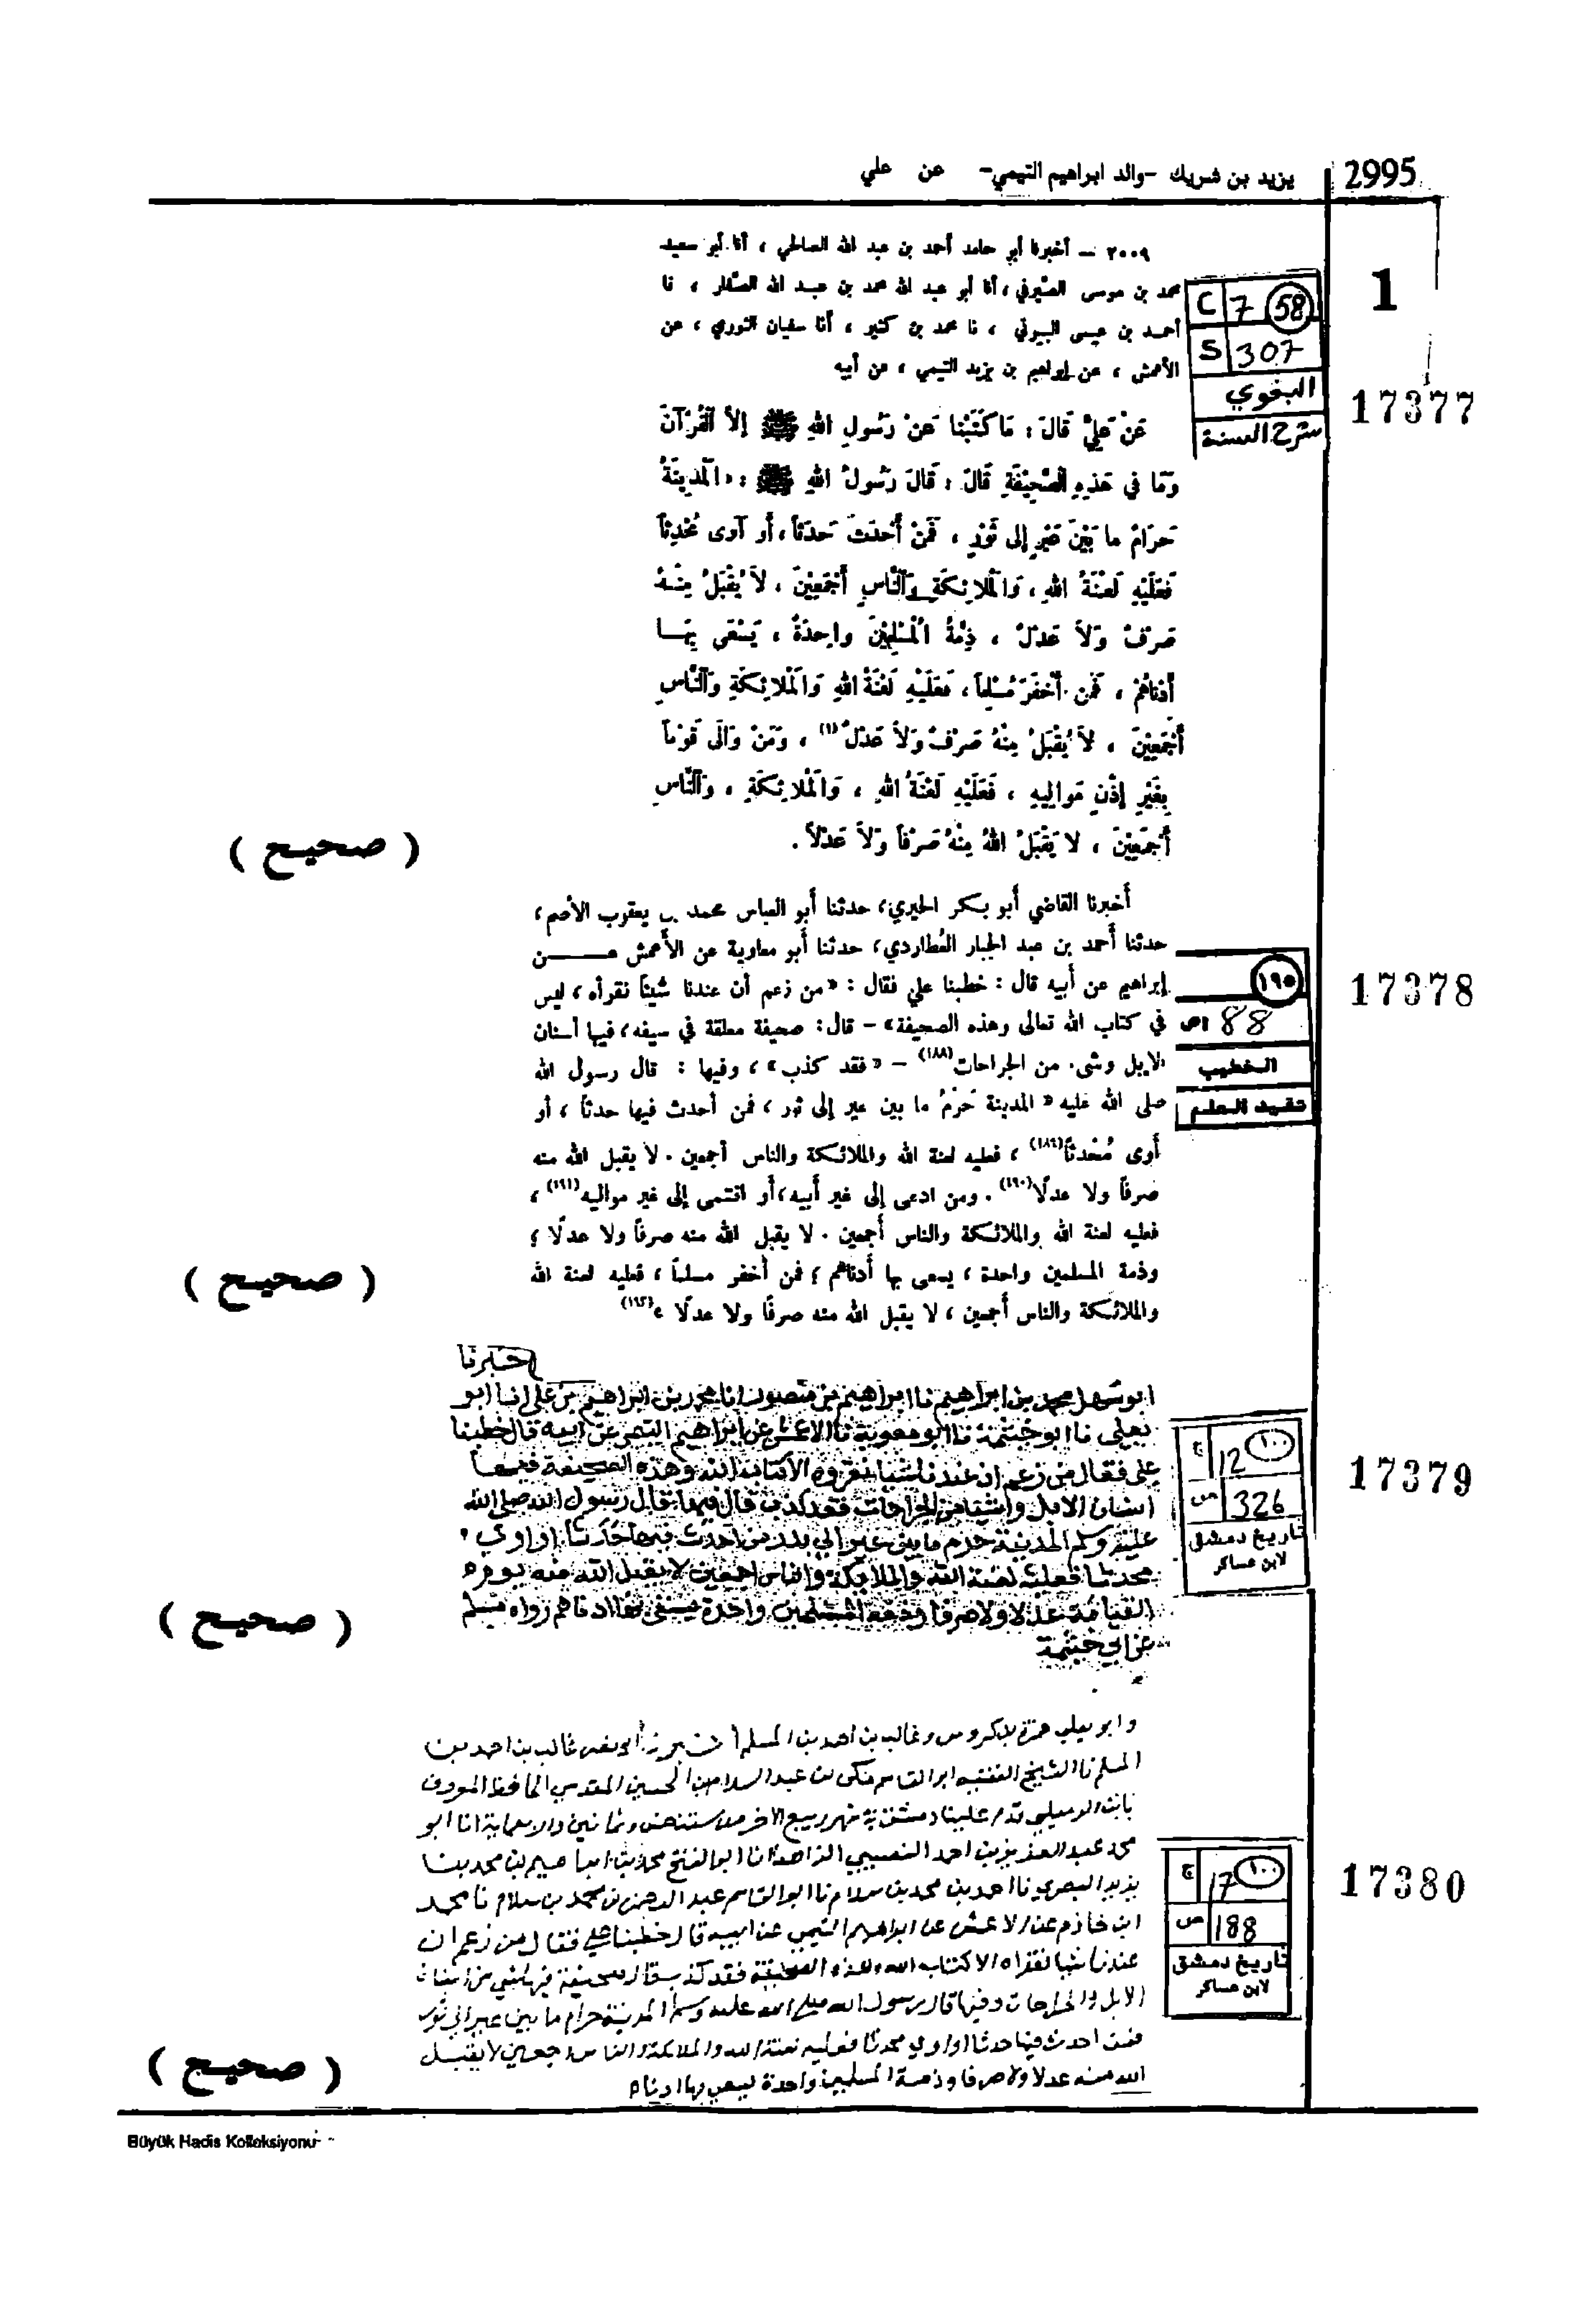 2995 يزيد بن شريك -والد ابراهيم التيمي- عن علي
1
17377
C 7 (58)
S 307
البغوي
شرح السنة
٢٠٠٩ — أخبرنا أبو حامد أحمد بن عبد الله الصالحي ، أنا أبو سعيد
محمد بن موسى الصيرفي ، أنا أبو عبد الله محمد بن عبد الله الصفار ، نا
أحمد بن عيسى البرتي ، نا محمد بن كثير ، أنا سفيان الثوري ، عن
الأعمش ، عن إبراهيم بن يزيد التيمي ، عن أبيه
عَنْ عَلِيٍّ قَالَ : مَا كَتَبْنَا عَنْ رَسُولِ اللهِ ﷺ إِلاَّ الْقُرْآنَ
وَمَا فِي هَذِهِ الصَّحِيْفَةِ قَالَ : قَالَ رَسُولُ اللهِ ﷺ : « الْمَدِيْنَةُ
حَرَامٌ مَا بَيْنَ عَيْرٍ إِلى ثَوْرٍ ، فَمَنْ أَحْدَثَ حَدَثاً ، أَو آوى مُحْدِثاً
فَعَلَيْهِ لَعْنَةُ اللهِ ، وَالْمَلائِكَةِ وَالنَّاسِ أَجْمَعِيْنَ ، لاَ يُقْبَلُ مِنْهُ
صَرْفٌ وَلاَ عَدْلٌ ، ذِمَّةُ الْمُسْلِمِيْنَ واحِدَةٌ ، يَسْعَى بِهَا
أَدْنَاهُمْ ، فَمَن أَخْفَرَ مُسْلِماً ، فَعَلَيْهِ لَعْنَةُ اللهِ وَالْمَلائِكَةِ وَالنَّاسِ
أَجْمَعِيْنَ ، لاَ يُقْبَلُ مِنْهُ صَرْفٌ وَلاَ عَدْلٌ (١) ، وَمَنْ وَالَى قَوْماً
بِغَيْرِ إِذْنِ مَوالِيهِ ، فَعَلَيْهِ لَعْنَةُ اللهِ ، وَالْمَلائِكَةِ ، وَالنَّاسِ
أَجْمَعِيْنَ ، لا يَقْبَلُ اللهُ مِنْهُ صَرْفاً وَلاَ عَدْلاً .
( صحيح )
17378
١٩٥
ص 88
الخطيب
تقييد العلم
أخبرنا القاضي أبو بكر الحيري، حدثنا أبو العباس محمد بن يعقوب الأصم،
حدثنا أحمد بن عبد الجبار العُطاردي، حدثنا أبو معاوية عن الأعمش عن
إبراهيم عن أبيه قال : خطبنا علي فقال : « من زعم أن عندنا شيئاً نقرأه ، ليس
في كتاب الله تعالى وهذه الصحيفة » – قال : صحيفة معلقة في سيفه، فيها أسنان
الإبل وشيء من الجراحات(١٨٨) – « فقد كذب » ، وفيها : قال رسول الله
صلى الله عليه « المدينة حَرَمٌ ما بين عير إلى ثور ، فمن أحدث فيها حدثاً ، أو
أوى مُحْدثاً(١٨٩) ، فعليه لعنة الله والملائكة والناس أجمعين . لا يقبل الله منه
صرفاً ولا عدلًا(١٩٠) . ومن ادعى إلى غير أبيه ، أو انتمى إلى غير مواليه(١٩١) ،
فعليه لعنة الله والملائكة والناس أجمعين . لا يقبل الله منه صرفاً ولا عدلًا ؛
وذمة المسلمين واحدة ، يسعى بها أدناهم ؛ فمن أخفر مسلماً ، فعليه لعنة الله
والملائكة والناس أجمعين ، لا يقبل الله منه صرفًا ولا عدلًا »(١٩٢)
( صحيح )
17379
ج 12 (١٠٠)
ص 326
تاريخ دمشق
لابن عساكر
اخبرنا
ابو سهل محمد بن ابراهيم نا ابراهيم بن منصور انا محمد بن ابراهيم بن علي انا ابو
يعلى نا ابو خيثمة نا ابو معوية نا الاعمش عن ابراهيم التيمي عن ابيه قال خطبنا
علي فقال من زعم ان عندنا شيئا نقروه الا كتاب الله وهذه الصحيفة فيها
اسنان الابل واشيا من الجراحات فقد كذب قال فيها قال رسول الله صلى الله
عليه وسلم المدينة حرم ما بين عير الى من احدث فيها حدثا او اوى
محدثا فعليه لعنة الله والملايكة والناس اجمعين لا يقبل الله منه يوم
القيامة عدلا ولا صرفا وذمة المسلمين واحدة يسعى بها ادناهم رواه مسلم
عن ابي خيثمة
( صحيح )
17380
ج 17 (١٠٠)
ص 188
تاريخ دمشق
لابن عساكر
وابو يعلى حمزة بن كروس وغالب بن احمد بن المسلم ابو نصر غالب بن احمد بن
المسلم نا الشيخ الفقيه ابو القاسم مكي بن عبد السلام بن الحسين المقدسي الحافظ المعروف
بابن الرميلي قدم علينا دمشق في شهر ربيع الاخر من سنة وثمانين واربعماية انا ابو
محمد عبد العزيز بن احمد النصيبي انا ابو الفتح محمد بن ابراهيم بن محمد بن
يزيد البصري نا احمد بن محمد بن سلام نا ابو القاسم عبد الرحمن بن محمد بن سلام نا محمد
ابن خازم عن الاعمش عن ابراهيم التيمي عن ابيه قال خطبنا علي فقال من زعم ان
عندنا شيا نقراه الا كتاب الله وهذه الصحيفة فقد كذب قال صحيفة فيها شي من اسنان
الابل والجراحات وفيها قال رسول الله صلى الله عليه وسلم المدينة حرام ما بين عير الى ثور
فمن احدث فيها حدثا او اوى محدثا فعليه لعنة الله والملائكة والناس اجمعين لا يقبل
الله منه عدلا ولا صرفا وذمة المسلمين واحدة يسعى بها ادناهم
( صحيح )
Büyük Hadis Kolleksiyonu